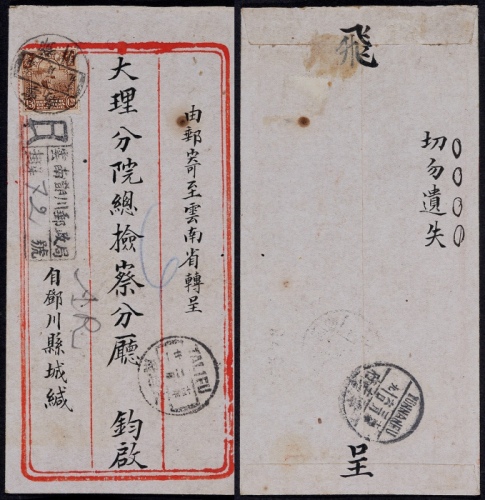 由郵寄至雲南省轉呈
大理分院總檢察分廳 鈞啟
自鄧川縣城緘
R
雲南鄧川郵政局
掛號
72
號
A.R.
TALIFU
飛
切勿遺失
呈
YUNNANFU